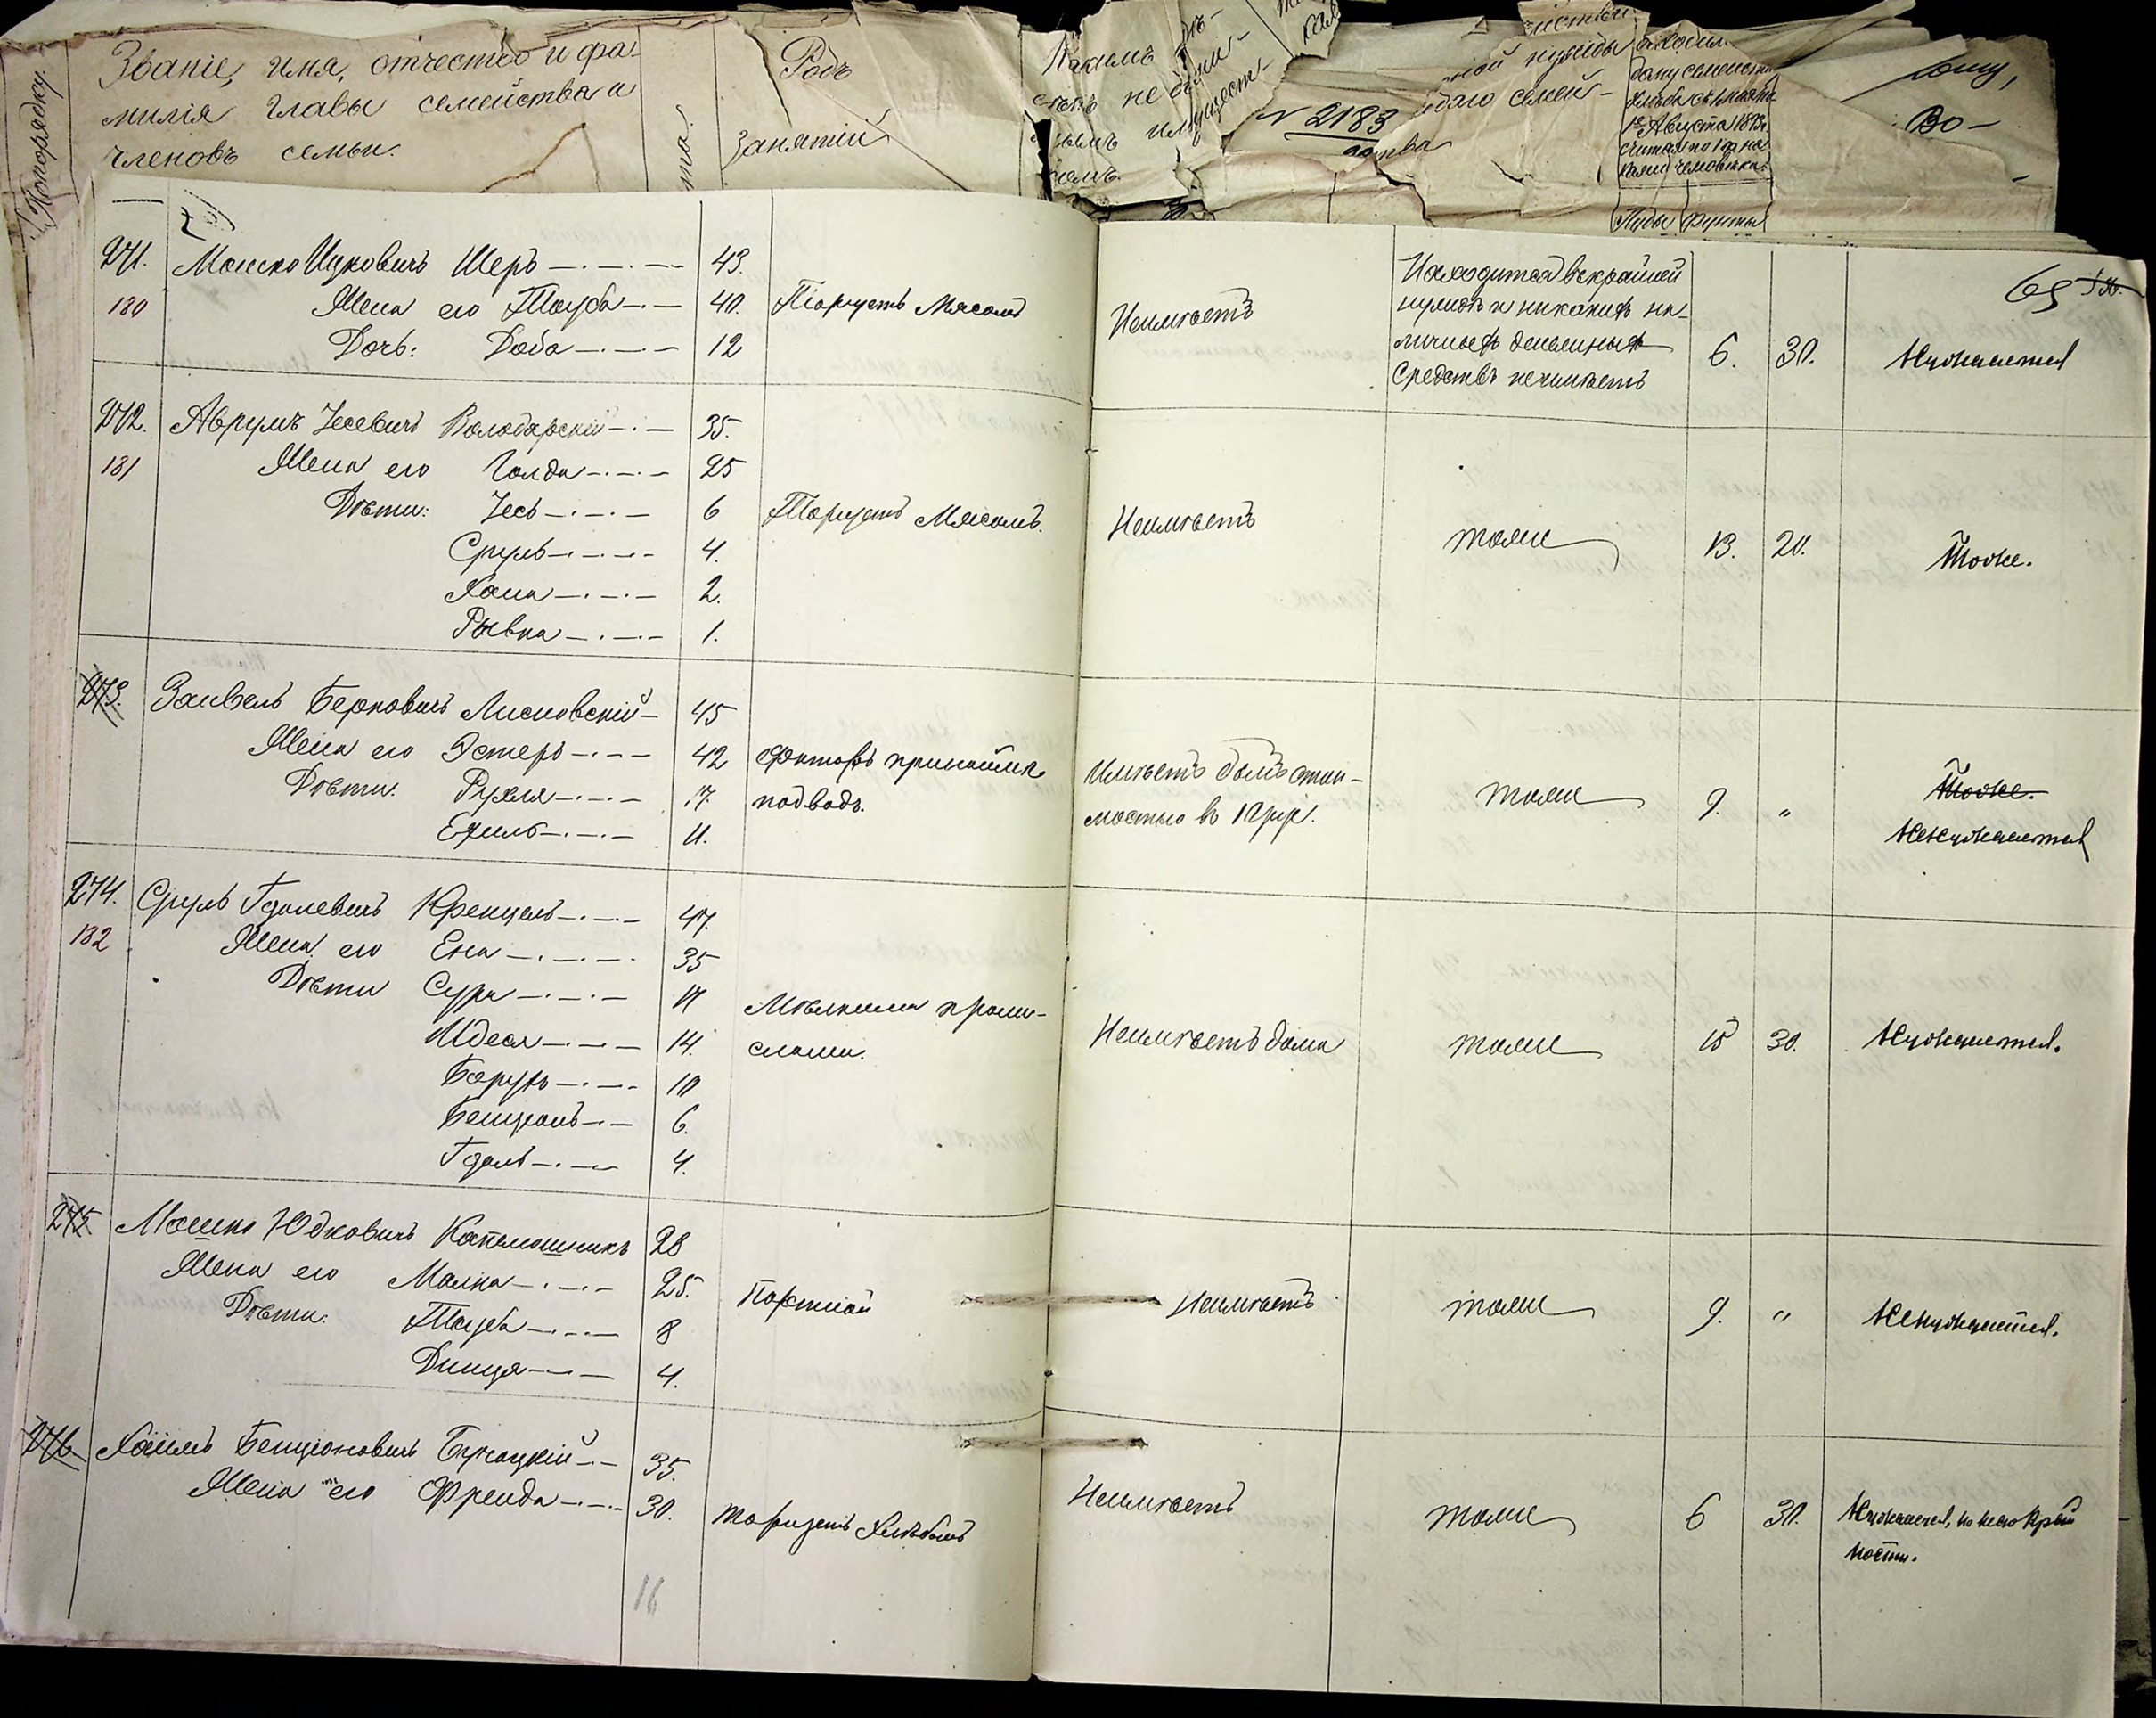 Попорядку.
Званіе, имя, отчество и фа-
милія главы семейства и
членовъ семьи.
Родъ
занятій
Какимъ
не
имущест-
N 2183
семей-
1го Августа
считая по 1 на
человѣка.
Пуды Фунты
Во-
65
271. Мошко Ицковичъ Шеръ 43.
180 Жена его Тауба 40. Торгуетъ Мясомъ
Дочь: Доба 12
Неимѣетъ
Находится въ крайней
нуждѣ и никакихъ на-
личныхъ денежныхъ
средствъ неимѣетъ
6. 30. Нуждается
272. Аврумъ Іосевичъ Володарскій 35.
181 Жена его Голда 25
Дѣти: Іось 6 Торгуетъ Мясомъ.
Сруль 4.
Хана 2.
Рывка 1.
Неимѣетъ тоже 13. 20. Тоже.
273. Зайвель Берковичъ Лисновскій 45
Жена его Эстеръ 42 Факторъ
Дѣти. Рухля 17. подводъ.
Ехиль 11.
Имѣетъ домъ стои-
мостью въ
тоже 9. "
Тоже.
Ненуждается
274. Сруль Гдалевичъ Кренцель 47.
182 Жена его Ена 35
Дѣти Сура 17 Мѣлкими промы-
Идеся 14. слами.
Борухъ 10
Бенціонъ 6.
Гдаль 4.
Неимѣетъ дома тоже 15 30. Нуждается.
275 Мошко Юдковичъ Капелюшникъ 28
Жена его Малка 25. Портной
Дѣти: Тауба 8
Двиця 4.
Неимѣетъ тоже 9. " Ненуждается.
276 Хаимъ Бенціоновичъ 35.
Жена его Фрейда 30. торгуетъ Хлѣбомъ
Неимѣетъ тоже 6 30. Нуждается, но не по край
ности.
16